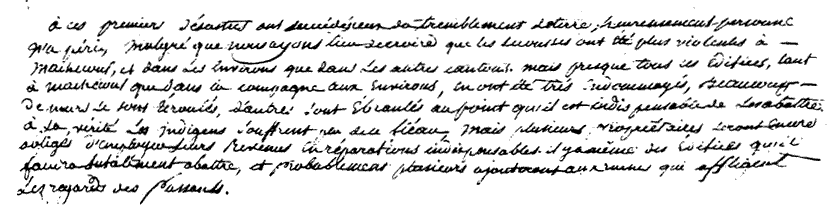 à ces premiers désastres ont succédé ceux du tremblement de terre, heureusement personne
n'a péri, malgré que nous ayons lieu de croire que les secousses ont été plus violentes à
machecoul, et dans les environs que dans les autres cantons. mais presque tous les édifices, tant
à machecoul que dans la campagne aux environs, en ont été très endommagés, beaucoup
de murs se sont écroulés, d'autres sont ébranlés au point qu'il est indispensable de les abattre.
à la vérité les indigens souffrent peu de ce fléau, mais plusieurs propriétaires seront encore
obligés d'employer leurs revenus en réparations indispensables. il y a même des édifices qu'il
faudra totalement abattre, et probablement plusieurs ajouteront aux ruines qui affligent
les regards des passants.